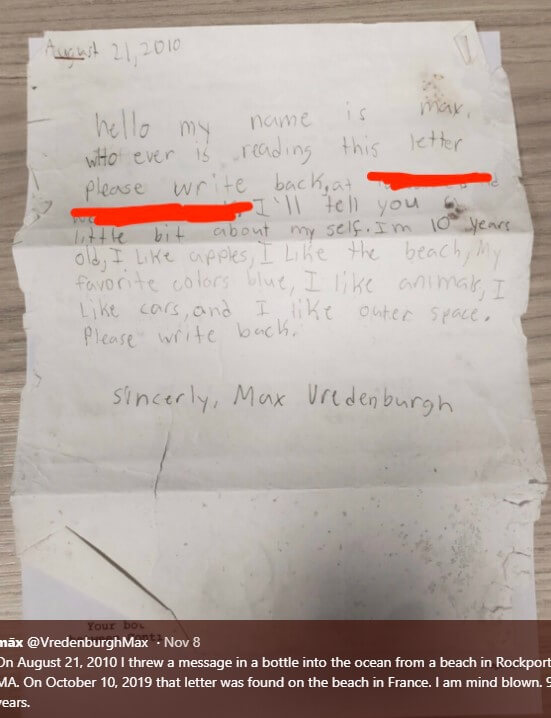 August 21, 2010
hello my name is max,
who ever is reading this letter
please write back, at
I'll tell you a
little bit about my self. Im 10 years
old, I Like apples, I Like the beach, My
favorite colors blue, I like animals, I
Like cars, and I like outer space.
Please write back.
sincerly, Max Vredenburgh
Your bo
māx @VredenburghMax · Nov 8
On August 21, 2010 I threw a message in a bottle into the ocean from a beach in Rockport
MA. On October 10, 2019 that letter was found on the beach in France. I am mind blown. 9
years.